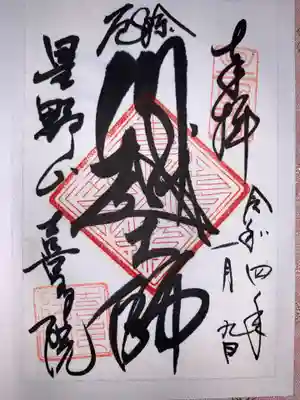 奉拝
令和四年
一月九日
厄除
川越大師
星野山喜多院